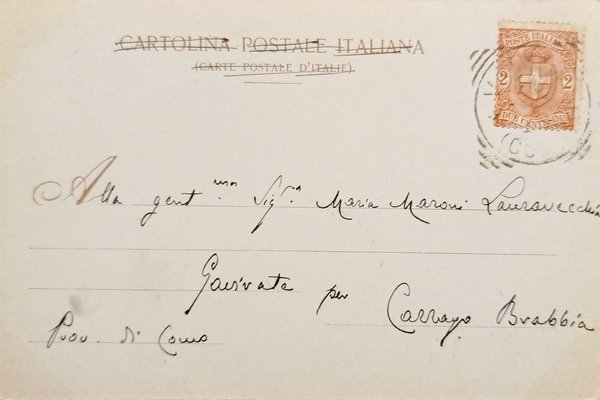 CARTOLINA POSTALE ITALIANA
(CARTE POSTALE D'ITALIE)
POSTE ITALIANE
2 2
DUE CENTESIMI
Alla gent.ma Sig.a Maria Maroni Lauravecchia
Gavirate per Cazzago Brabbia
Prov. di Como